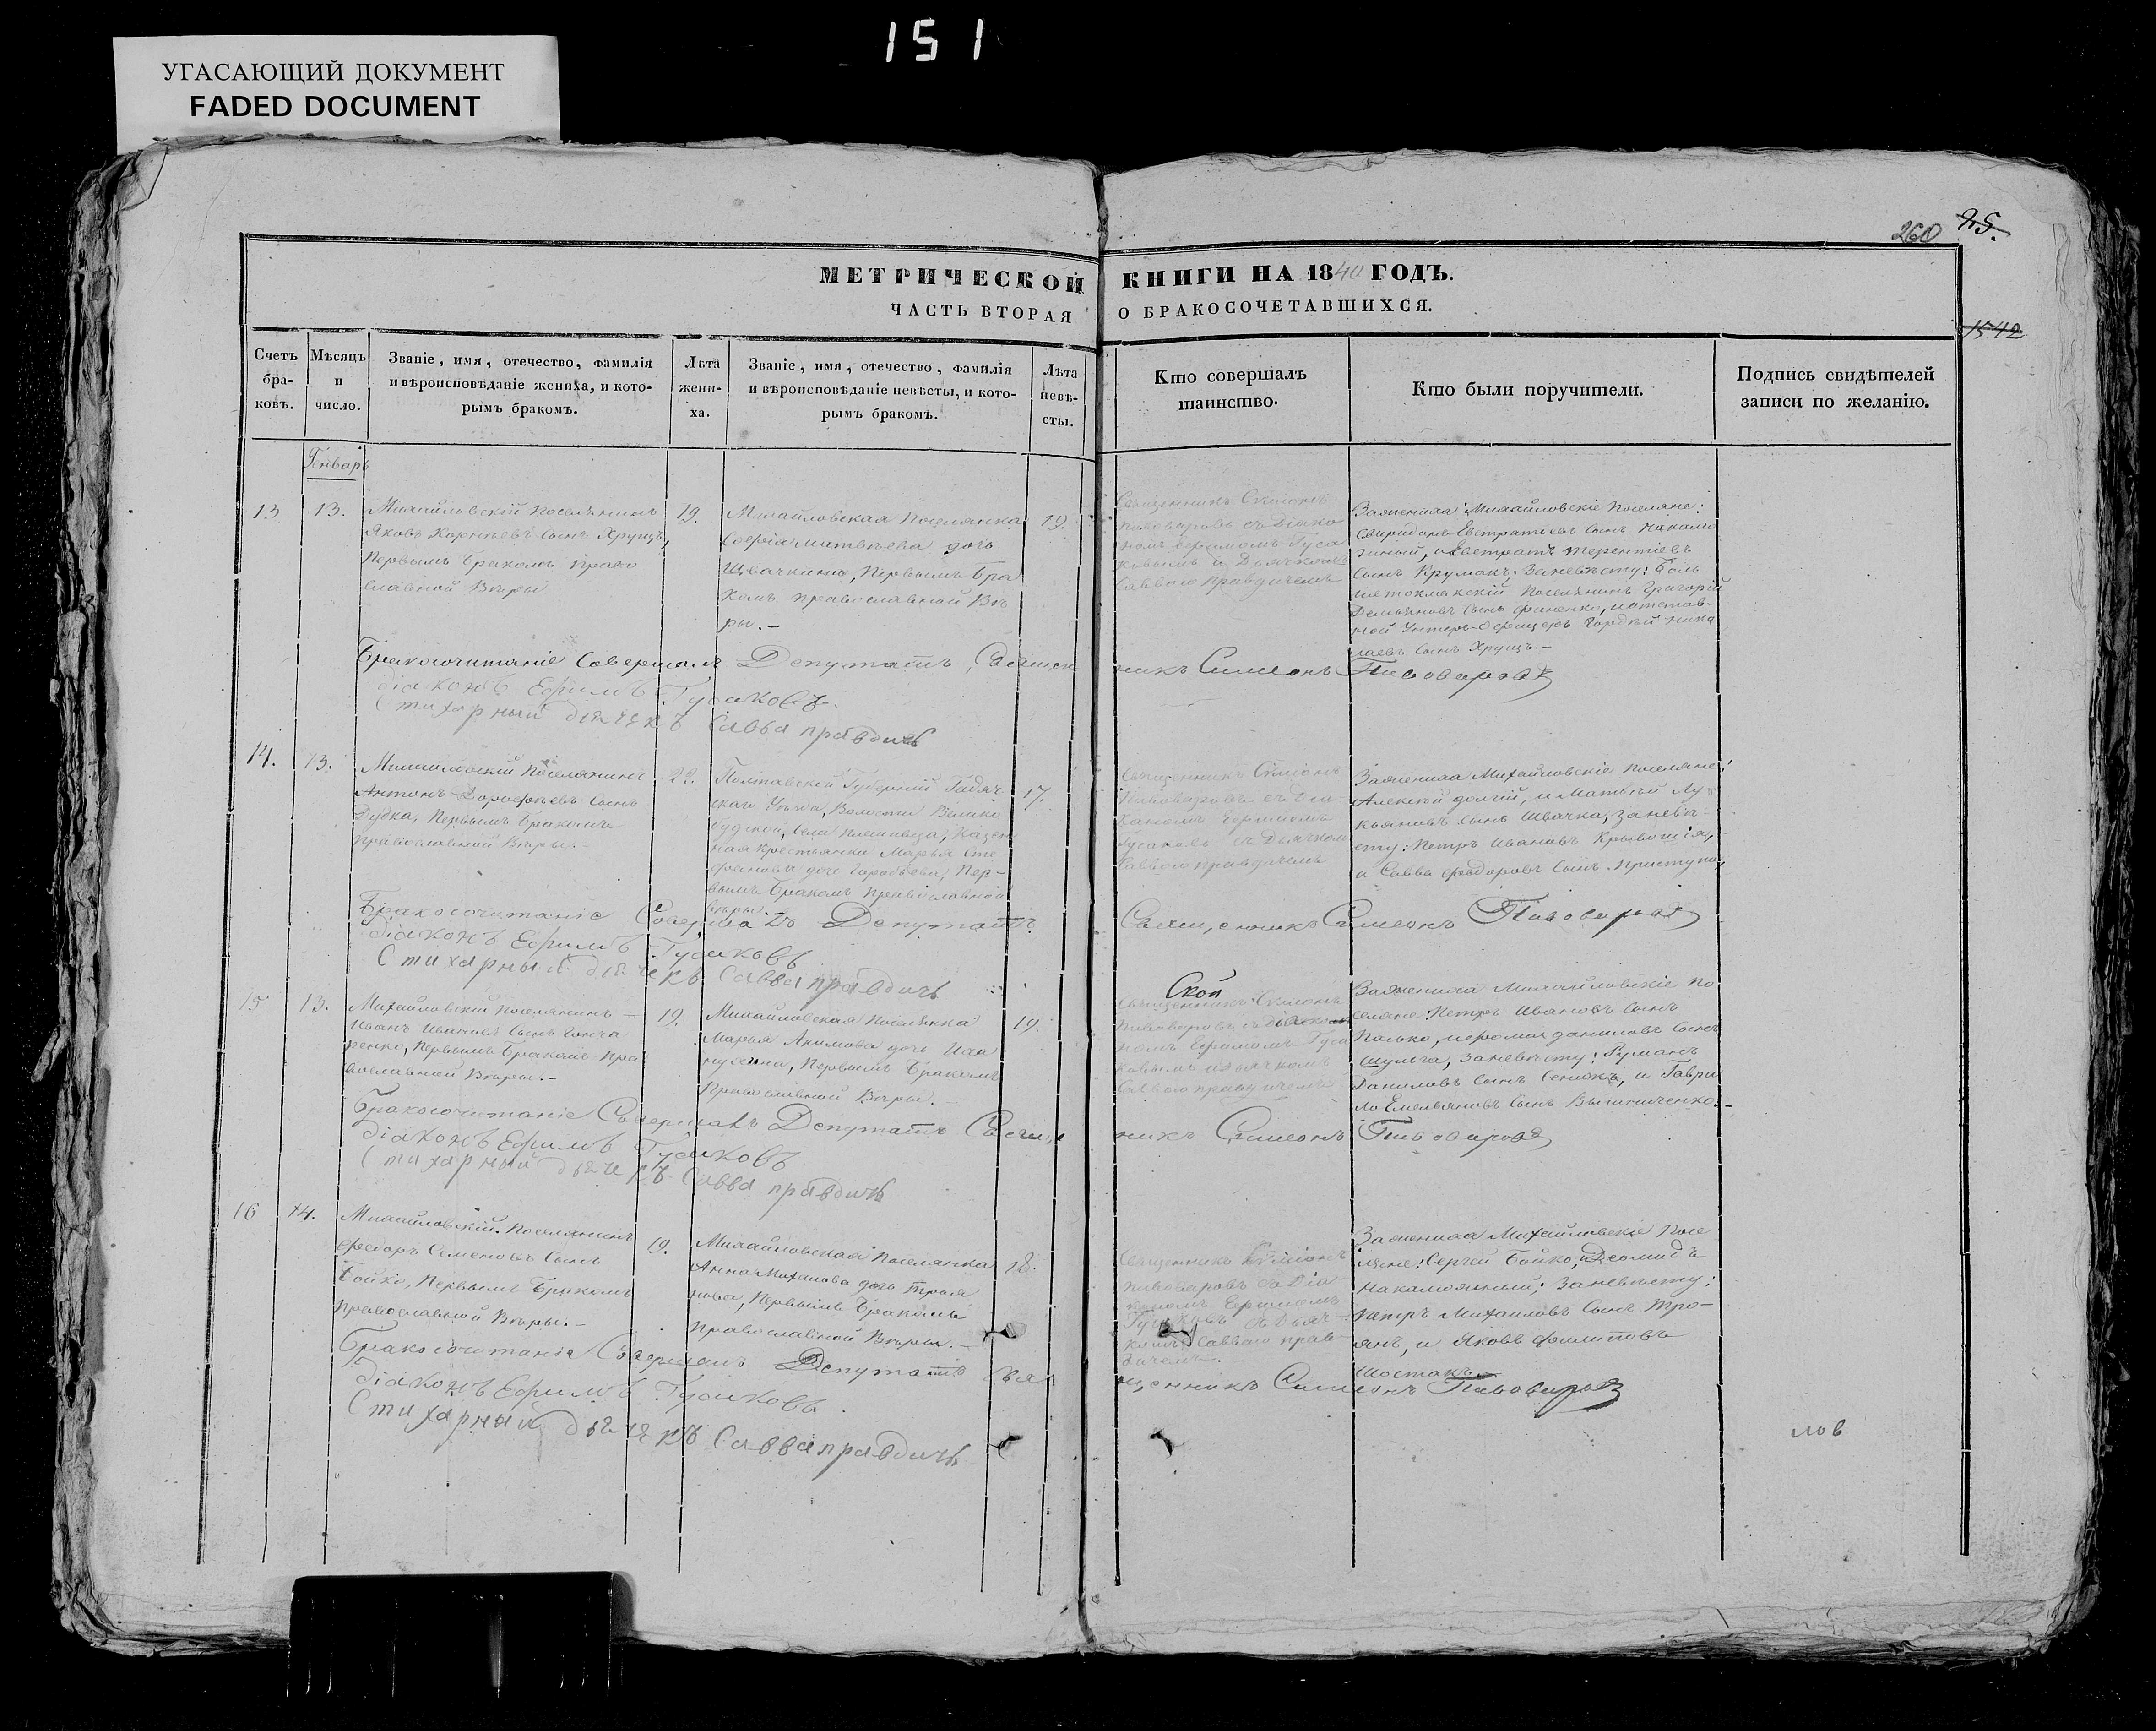 151
УГАСАЮЩИЙ ДОКУМЕНТ
FADED DOCUMENT
260 25.
МЕТРИЧЕСКОЙ КНИГИ НА 1840 ГОДЪ.
ЧАСТЬ ВТОРАЯ О БРАКОСОЧЕТАВШИХСЯ.
1542
Счетъ
бра-
ковъ.
Мѣсяцъ
и
число.
Званіе, имя, отечество, фамилія
и вѣроисповѣданіе жениха, и кото-
рымъ бракомъ.
Лѣта
жени-
ха.
Званіе, имя, отечество, фамилія
и вѣроисповѣданіе невѣсты, и кото-
рымъ бракомъ.
Лѣта
невѣ-
сты.
Кто совершалъ
таинство.
Кто были поручители.
Подпись свидѣтелей
записи по желанію.
Генварь
13
13.
Михайловскій Поселянинъ
Яковъ Корнѣевъ Сынъ Хрущъ,
Первымъ Бракомъ Право
славной Вѣры
19.
Михайловская Поселянка
Софія Матвѣева дочь
Швачкина, Первымъ Бра
комъ православной Вѣ
ры.-
19.
Священникъ Симіонъ
Пивоваровъ съ Діако
номъ Ефимомъ Гуса
ковымъ и Дьячкомъ
Саввою Правдичемъ
Зажениха: Михайловскіе Поселяне:
Свиридонъ Евстратіевъ Сынъ
и Евстратъ Терентіевъ
Сынъ Крумакъ; Заневѣсту: Боль
шетокмакскій Поселянинъ Григорій
Демьяновъ Сынъ Финенко, и отстав-
ной Унтеръ-Офицеръ Гордѣй Нико
лаевъ Сынъ Хрущъ.-
Бракосочитаніе Совершалъ Депутатъ, Священ никъ Симеонъ Пивоваровъ
діаконъ Ефимъ Гусаковъ.
Стихарный дьячекъ Савва правдичъ
14.
13.
Михайловскій Поселянинъ
Антонъ Дорофѣевъ Сынъ
Дудка, Первымъ Бракомъ
православной Вѣры.-
22.
Полтавской Губерніи Гадяч
скаго Уѣзда, Волости
села Плешивца, Казен
ная крестьянка Марья Сте
фанова дочь Горобьева, Пер-
вымъ Бракомъ Православной
Вѣры.
17.
Священникъ Симіонъ
Пивоваровъ съ Діа-
кономъ Ефимомъ
Гусаковъ съ Дьячкомъ
Саввою Правдичемъ
Зажениха Михайловскіе Поселяне:
Алексѣй долгій, и Матвѣй Лу-
кьяновъ Сынъ Швачка, заневѣ-
сту: Петръ Ивановъ Кривошія,
и Савва Федоровъ Сынъ Приступа,
Бракосочитаніе Совершалъ Депутатъ Священникъ Симеонъ Пивоваровъ
діаконъ Ефимъ Гусаковъ
Стихарный дьячекъ Савва правдичъ
15
13.
Михайловскій Поселянинъ
Иванъ Ивановъ Сынъ Гонча
ренко, Первымъ Бракомъ Пра
вославной Вѣры.-
19.
Михайловская Поселянка
Марья Акимова дочь
Первымъ Бракомъ
Православной Вѣры.-
19.
Ской
Священникъ Симіонъ
Пивоваровъ съ Діако
номъ Ефимомъ Гуса
ковымъ и дьячкомъ
Саввою правдичемъ
Зажениха Михайловскіе По
селяне: Петръ Ивановъ Сынъ
Даниловъ Сынъ
Шульга, Заневѣсту: Романъ
Даниловъ Сынъ Сенюкъ, и Гаври
ло Емельяновъ Сынъ Вишниченко.-
Бракосочитаніе Совершалъ Депутатъ Священ никъ Симеонъ Пивоваровъ
діаконъ Ефимъ Гусаковъ
Стихарный дьячекъ Савва правдичъ
16
14.
Михайловскій Поселянинъ
Федоръ Семеновъ Сынъ
Бойко, Первымъ Бракомъ
Православной Вѣры.-
19.
Михайловская Поселянка
Анна Михайлова дочь Троя
нова, Первымъ Бракомъ
Православной Вѣры.-
18.
Священникъ Симіонъ
Пивоваровъ съ Діа
кономъ Ефимомъ
Гусаковъ съ Дьяч-
комъ Саввою прав-
дичемъ.
Зажениха Михайловскіе Посе
ляне: Сергій Бойко, и Деомидъ
Заневѣсту:
Петръ Михайловъ Сынъ Тро-
янъ, и Яковъ Филиповъ
Шостакъ
Бракосочитаніе Совершалъ Депутатъ Свя щенникъ Симеонъ Пивоваровъ
діаконъ Ефимъ Гусаковъ.
Стихарный дьячекъ Савва правдичъ
лов